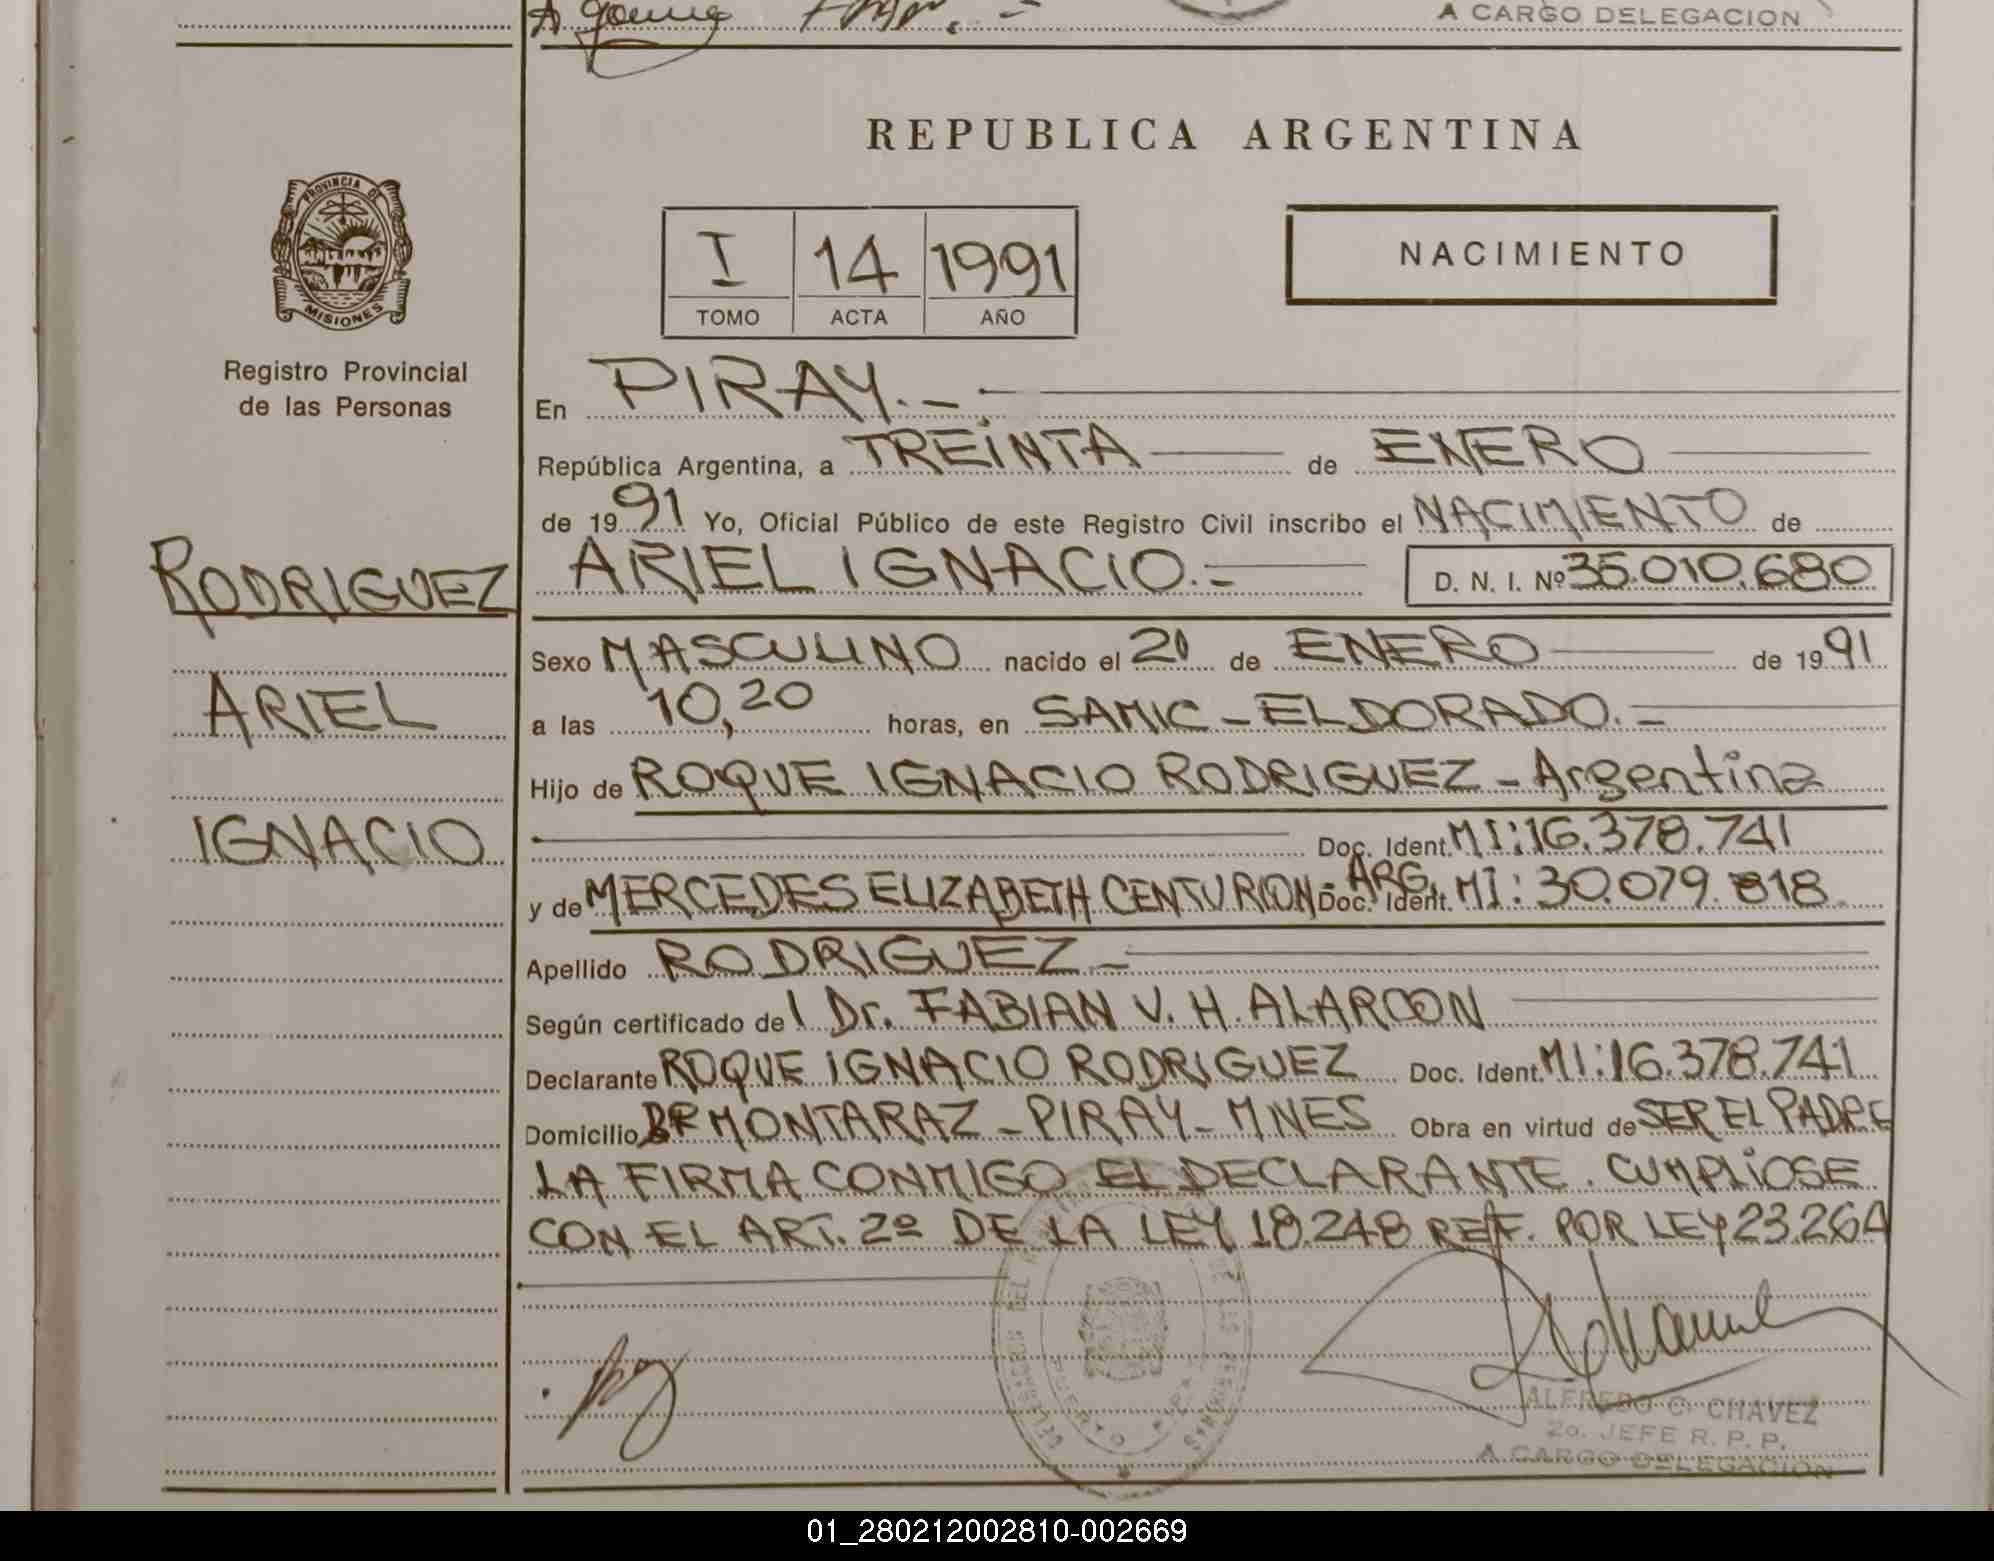 A CARGO DELEGACION
REPUBLICA ARGENTINA
PROVINCIA DE
MISIONES
Registro Provincial
de las Personas
RODRIGUEZ
ARIEL
IGNACIO
I 14 1991
TOMO ACTA AÑO
NACIMIENTO
En PIRAY.-
República Argentina, a TREINTA de ENERO
de 1991 Yo, Oficial Público de este Registro Civil inscribo el NACIMIENTO de
ARIEL IGNACIO.- D. N. I. Nº 35.010.680
Sexo MASCULINO nacido el 20 de ENERO de 1991
a las 10,20 horas, en SAMIC - ELDORADO.-
Hijo de ROQUE IGNACIO RODRIGUEZ - Argentina
Doc. Ident. MI:16.378.741
y de MERCEDES ELIZABETH CENTURION - ARG. Doc. Ident. MI: 30.079.818
Apellido RODRIGUEZ -
Según certificado del Dr. FABIAN V. H. ALARCON
Declarante ROQUE IGNACIO RODRIGUEZ Doc. Ident. MI:16.378.741
Domicilio Bº MONTARAZ - PIRAY - MNES Obra en virtud de SER EL PADRE
LA FIRMA CONMIGO EL DECLARANTE. CUMPLIOSE
CON EL ART. 2º DE LA LEY 18.248 REF. POR LEY 23.264
ALFREDO C. CHAVEZ
2o. JEFE R. P. P.
A CARGO DELEGACION
01_280212002810-002669